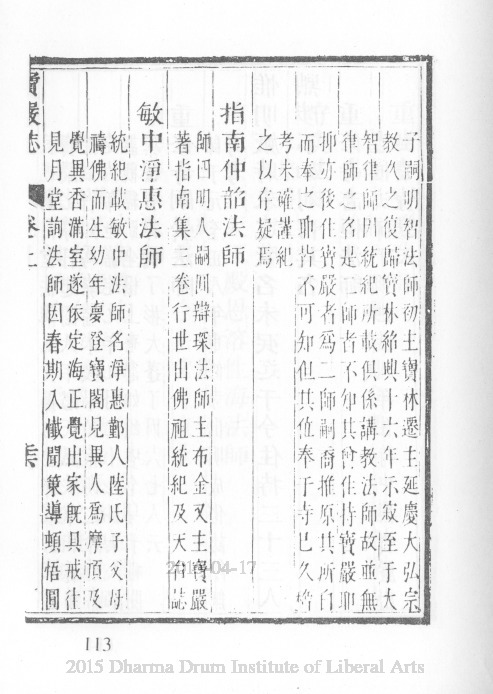 子嗣明智法師初主寶林遷主延慶大弘宗
教久之復歸寶林紹興十六年示寂至于大
智律師因統紀所載俱係講教法師故並無
律師之名是二師者不知其曾住持寶嚴耶
抑亦後住寶嚴者為二師嗣裔推原其所自
而奉之耶皆不可知但其位奉于寺已久
考未確謹紀
之以存疑焉
指南仲韶法師
師四明人嗣圓辯琛法師主布金又主寶嚴
著指南集三卷行世出佛祖統紀及天台誌
敏中淨惠法師
統紀載敏中法師名淨惠鄞人陸氏子父母
禱佛而生幼年慶登寶閣見異人為摩頂及
覺異香滿室遂依定海正覺出家既具戒往
見月堂詢法師因春期入懺聞策導頓悟圓
寶嚴誌
卷上
113
2019-04-17
2015 Dharma Drum Institute of Liberal Arts